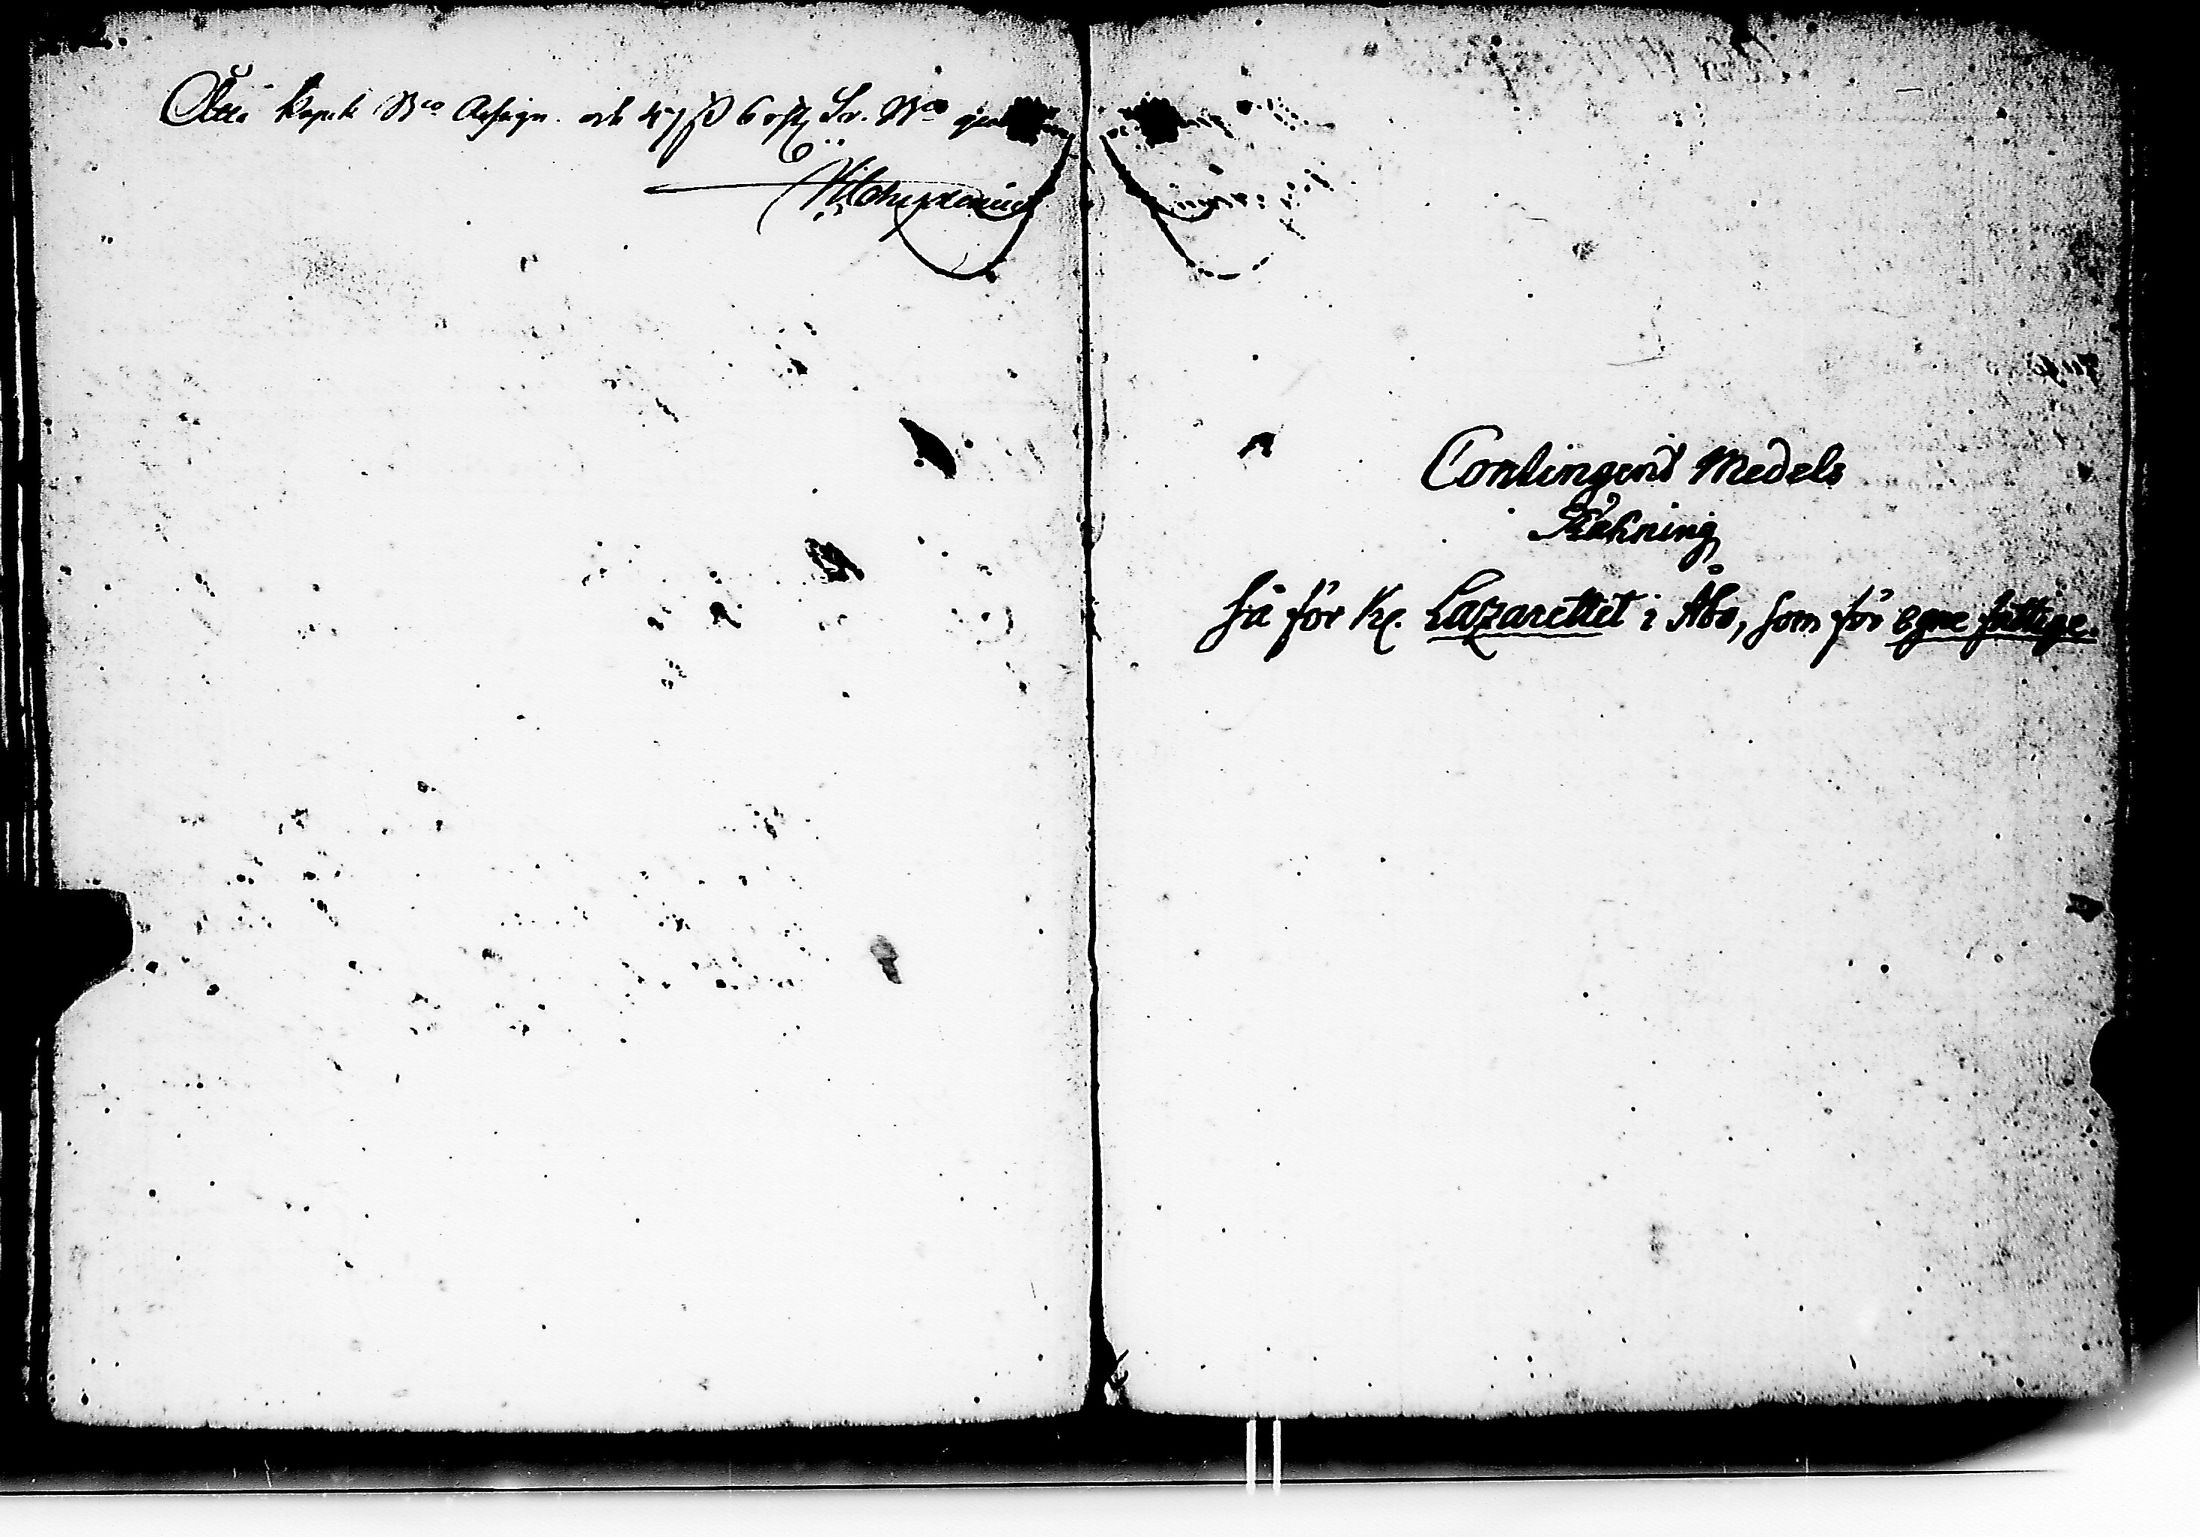 Åtta kopek Bco Assign. och 47 ß 6 rst. Sv. Bco
Contingent Medels
Räkning
så för K. Lazarettet i Åbo, som för egne fattige.